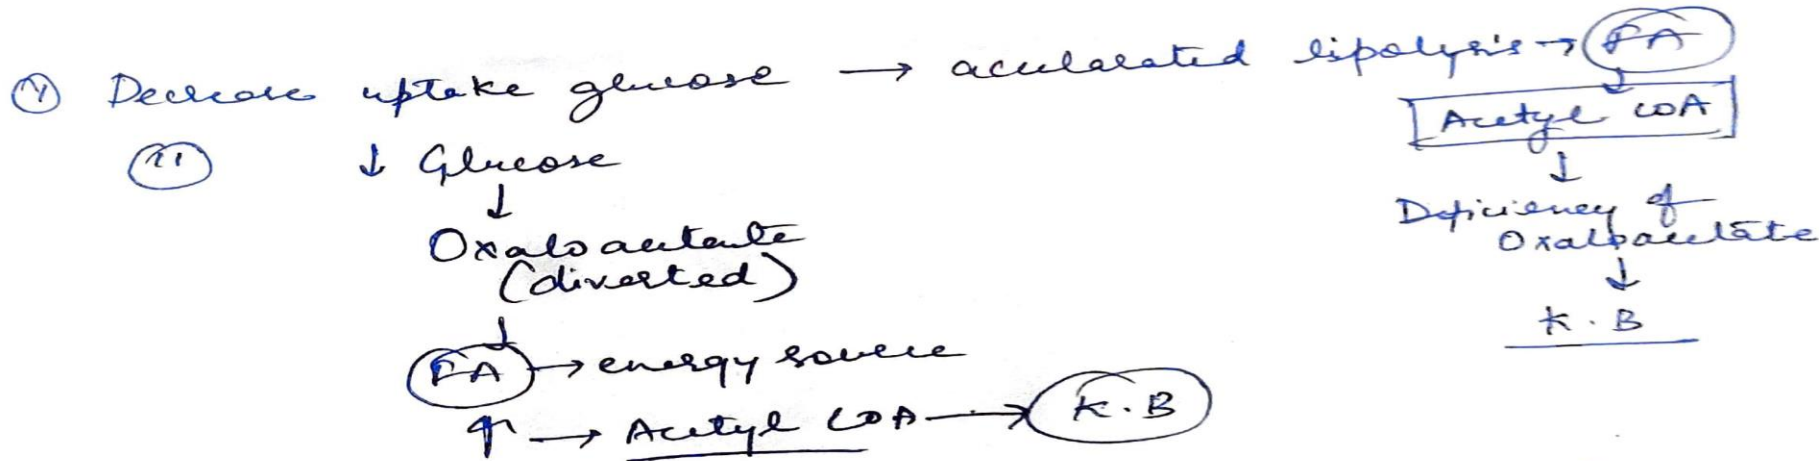 Decrease uptake glucose → accelarated lipolysis → FA
↓
Acetyl COA
(ii) ↓ Glucose
↓
↓
Deficiency of
Oxaloacetate
Oxaloacetate
(diverted)
↓
↓
K.B
FA → energy source
↑ → Acetyl COA → K.B